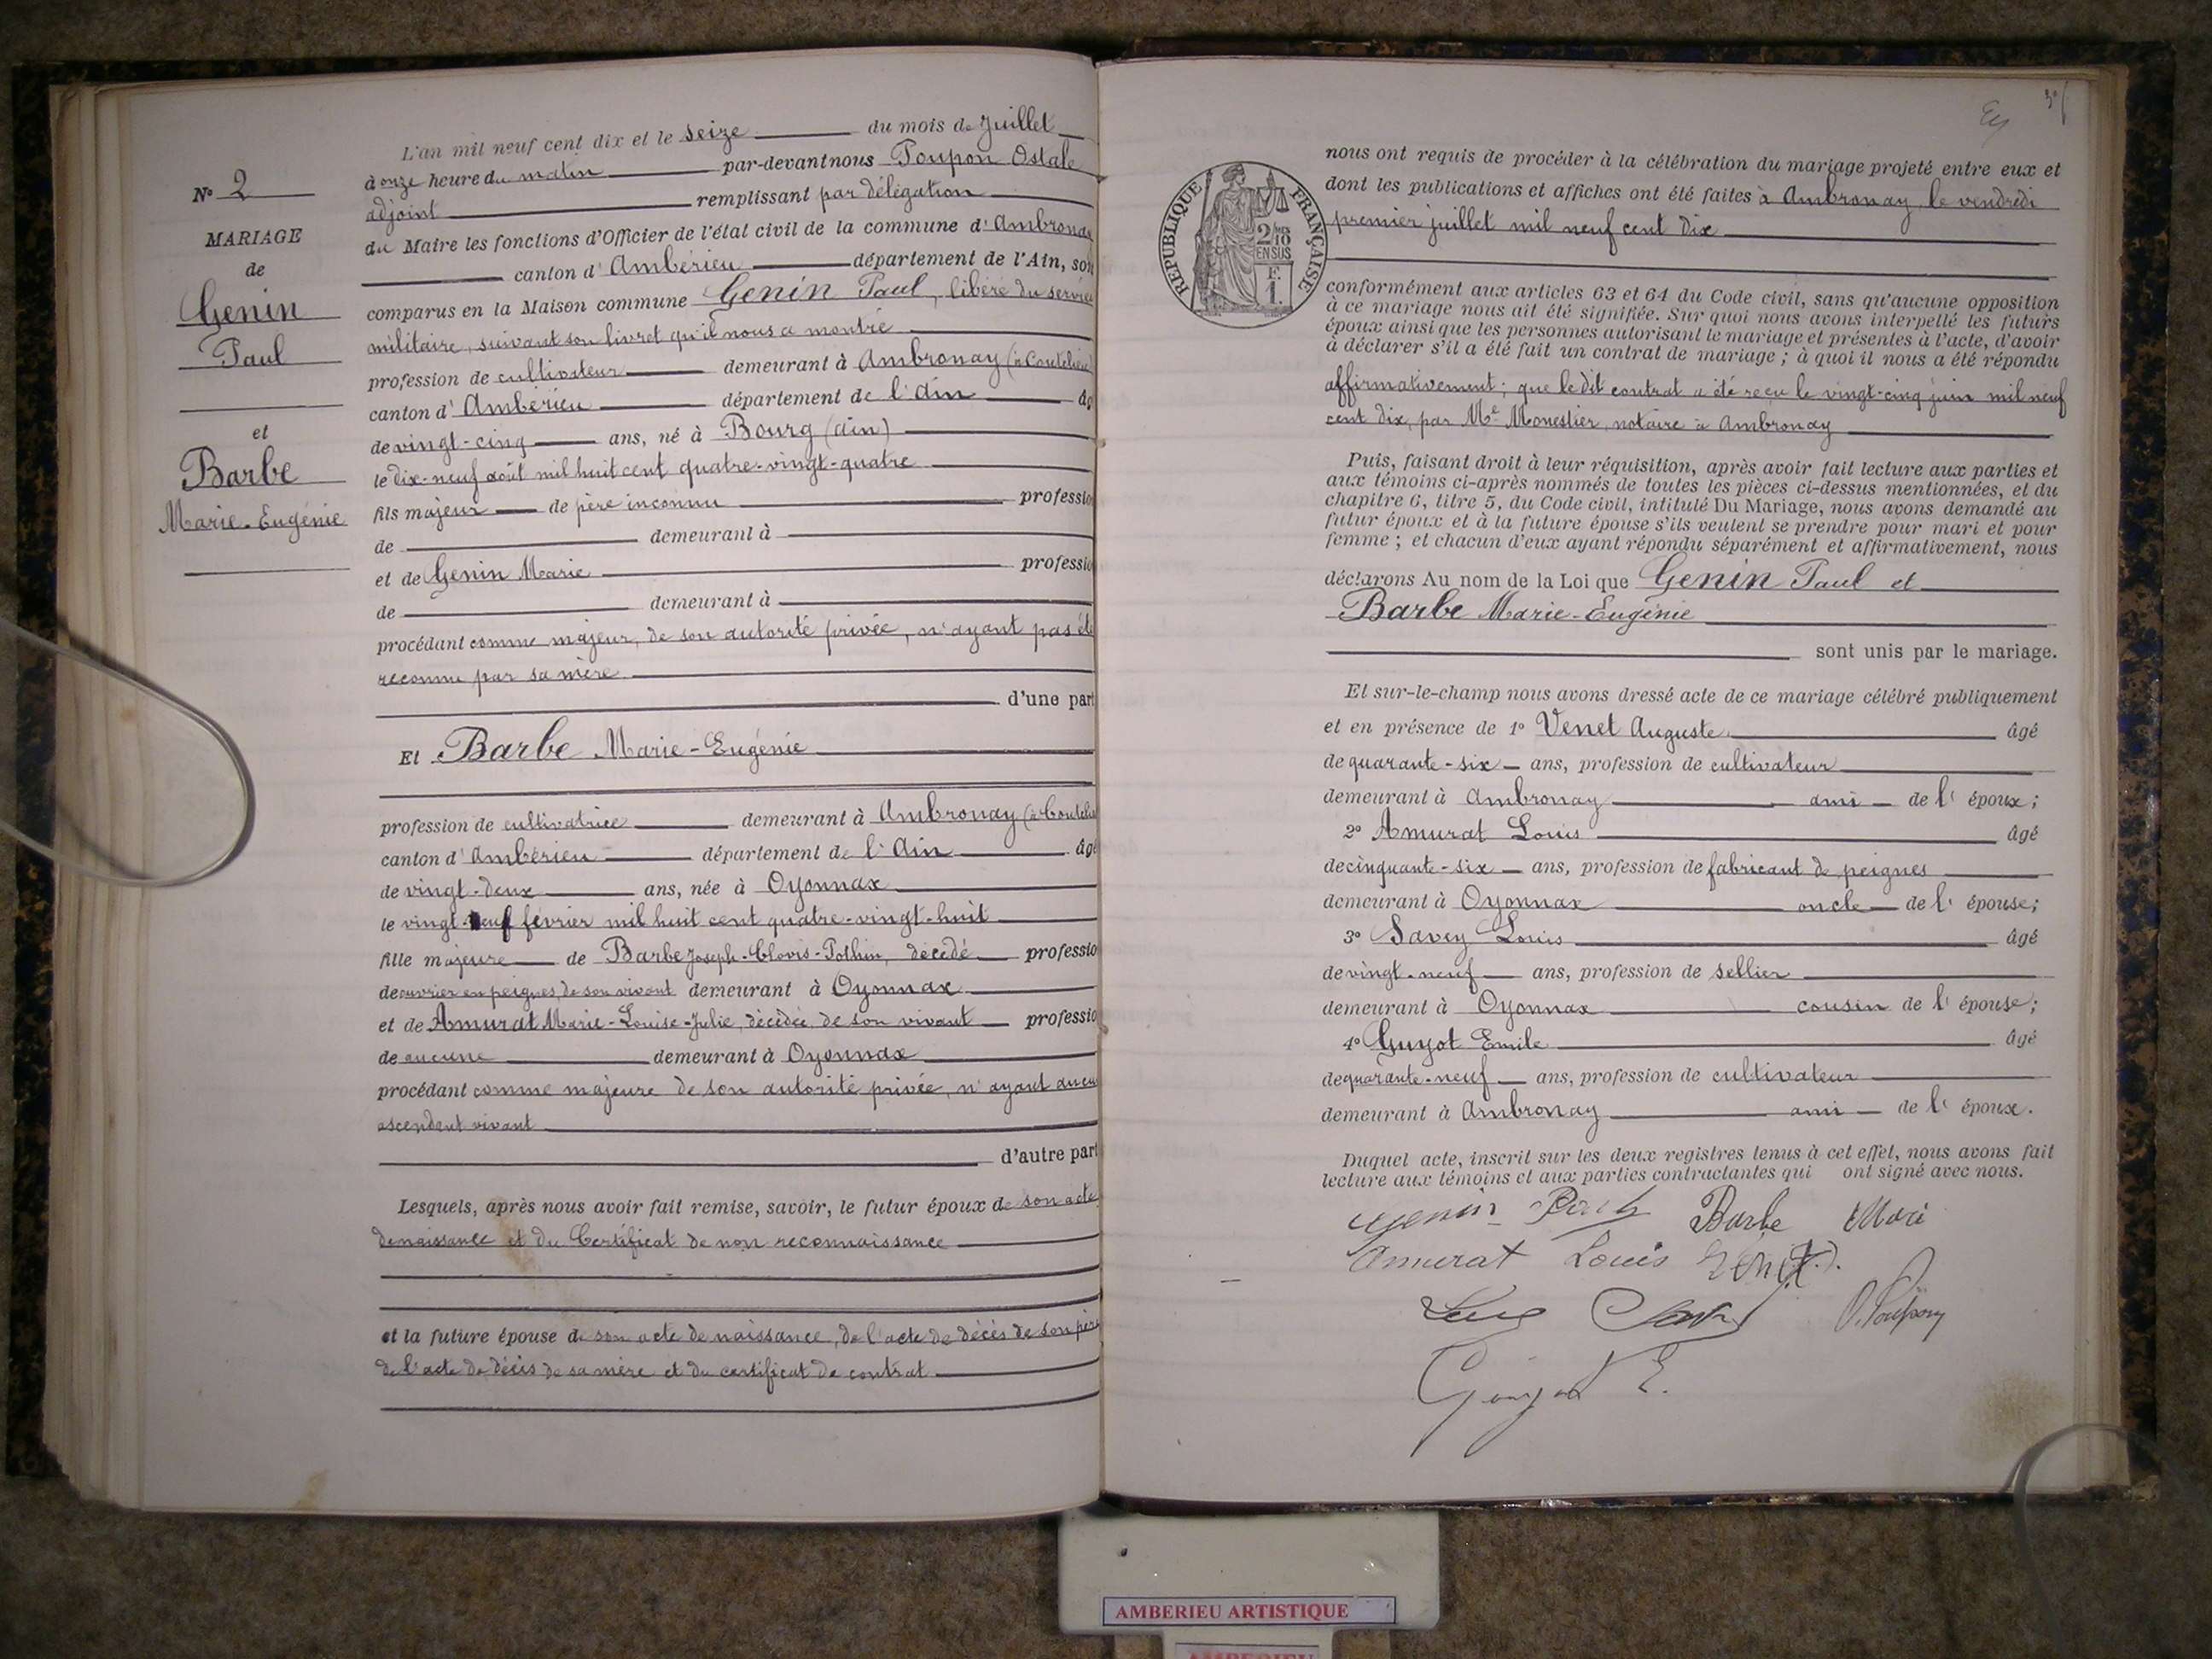 N° 2
MARIAGE
de
Genin
Paul
et
Barbe
Marie-Eugénie
L'an mil neuf cent dix et le seize du mois de Juillet
à onze heure du matin par-devant nous Poupon Ostale
adjoint remplissant par délégation
du Maire les fonctions d'Officier de l'état civil de la commune d'Ambronay
canton d'Ambérieu département de l'Ain, son
comparus en la Maison commune Genin Paul, libéré du service
militaire, suivant son livret qu'il nous a montré
profession de cultivateur demeurant à Ambronay
canton d'Ambérieu département de l'Ain âg
de vingt-cinq ans, né à Bourg (Ain)
le dix-neuf août mil huit cent quatre-vingt-quatre
fils majeur de père inconnu profession
de demeurant à
et de Genin Marie professio
de demeurant à
procédant comme majeur, de son autorité privée, n'ayant pas été
reconnu par sa mère
d'une part
Et Barbe Marie-Eugénie
profession de cultivatrice demeurant à Ambronay
canton d'Ambérieu département de l'Ain âgé
de vingt-deux ans, née à Oyonnax
le vingt-neuf février mil huit cent quatre-vingt-huit
fille majeure de Barbe Joseph-Clovis-Pothin, décédé professio
de ouvrier en peignes, de son vivant demeurant à Oyonnax
et de Amurat Marie-Louise-Julie, décédée, de son vivant professio
de aucune demeurant à Oyonnax
procédant comme majeure de son autorité privée, n'ayant aucu
ascendent vivant
d'autre part
Lesquels, après nous avoir fait remise, savoir, le futur époux de son acte
de naissance et du Certificat de non reconnaissance
et la future épouse de son acte de naissance, de l'acte de décès de son père
de l'acte de décès de sa mère et du certificat de contrat
REPUBLIQUE FRANÇAISE
2/10
EN SUS
F.
1.
nous ont requis de procéder à la célébration du mariage projeté entre eux et
dont les publications et affiches ont été faites à Ambronay, le vendredi
premier juillet mil neuf cent dix
conformément aux articles 63 et 64 du Code civil, sans qu'aucune opposition
à ce mariage nous ait été signifiée. Sur quoi nous avons interpellé les futurs
époux ainsi que les personnes autorisant le mariage et présentes à l'acte, d'avoir
à déclarer s'il a été fait un contrat de mariage ; à quoi il nous a été répondu
affirmativement ; que le dit contrat a été reçu le vingt-cinq juin mil neuf
cent dix, par Me Monestier, notaire à Ambronay
Puis, faisant droit à leur réquisition, après avoir fait lecture aux parties et
aux témoins ci-après nommés de toutes les pièces ci-dessus mentionnées, et du
chapitre 6, titre 5, du Code civil, intitulé Du Mariage, nous avons demandé au
futur époux et à la future épouse s'ils veulent se prendre pour mari et pour
femme ; et chacun d'eux ayant répondu séparément et affirmativement, nous
déclarons Au nom de la Loi que Genin Paul et
Barbe Marie-Eugénie
sont unis par le mariage.
Et sur-le-champ nous avons dressé acte de ce mariage célébré publiquement
et en présence de 1° Venet Auguste âgé
de quarante-six ans, profession de cultivateur
demeurant à Ambronay ami de l' époux ;
2° Amurat Louis âgé
de cinquante-six ans, profession de fabricant de peignes
demeurant à Oyonnax oncle de l' épouse ;
3° Savey Louis âgé
de vingt-neuf ans, profession de sellier
demeurant à Oyonnax cousin de l' épouse ;
4° Guyot Emile âgé
de quarante-neuf ans, profession de cultivateur
demeurant à Ambronay ami de l' époux.
Duquel acte, inscrit sur les deux registres tenus à cet effet, nous avons fait
lecture aux témoins et aux parties contractantes qui ont signé avec nous.
Genin Barbe Mari
Amurat Louis
O. Poupon
Guyot E.
AMBERIEU ARTISTIQUE
AMBERIEU